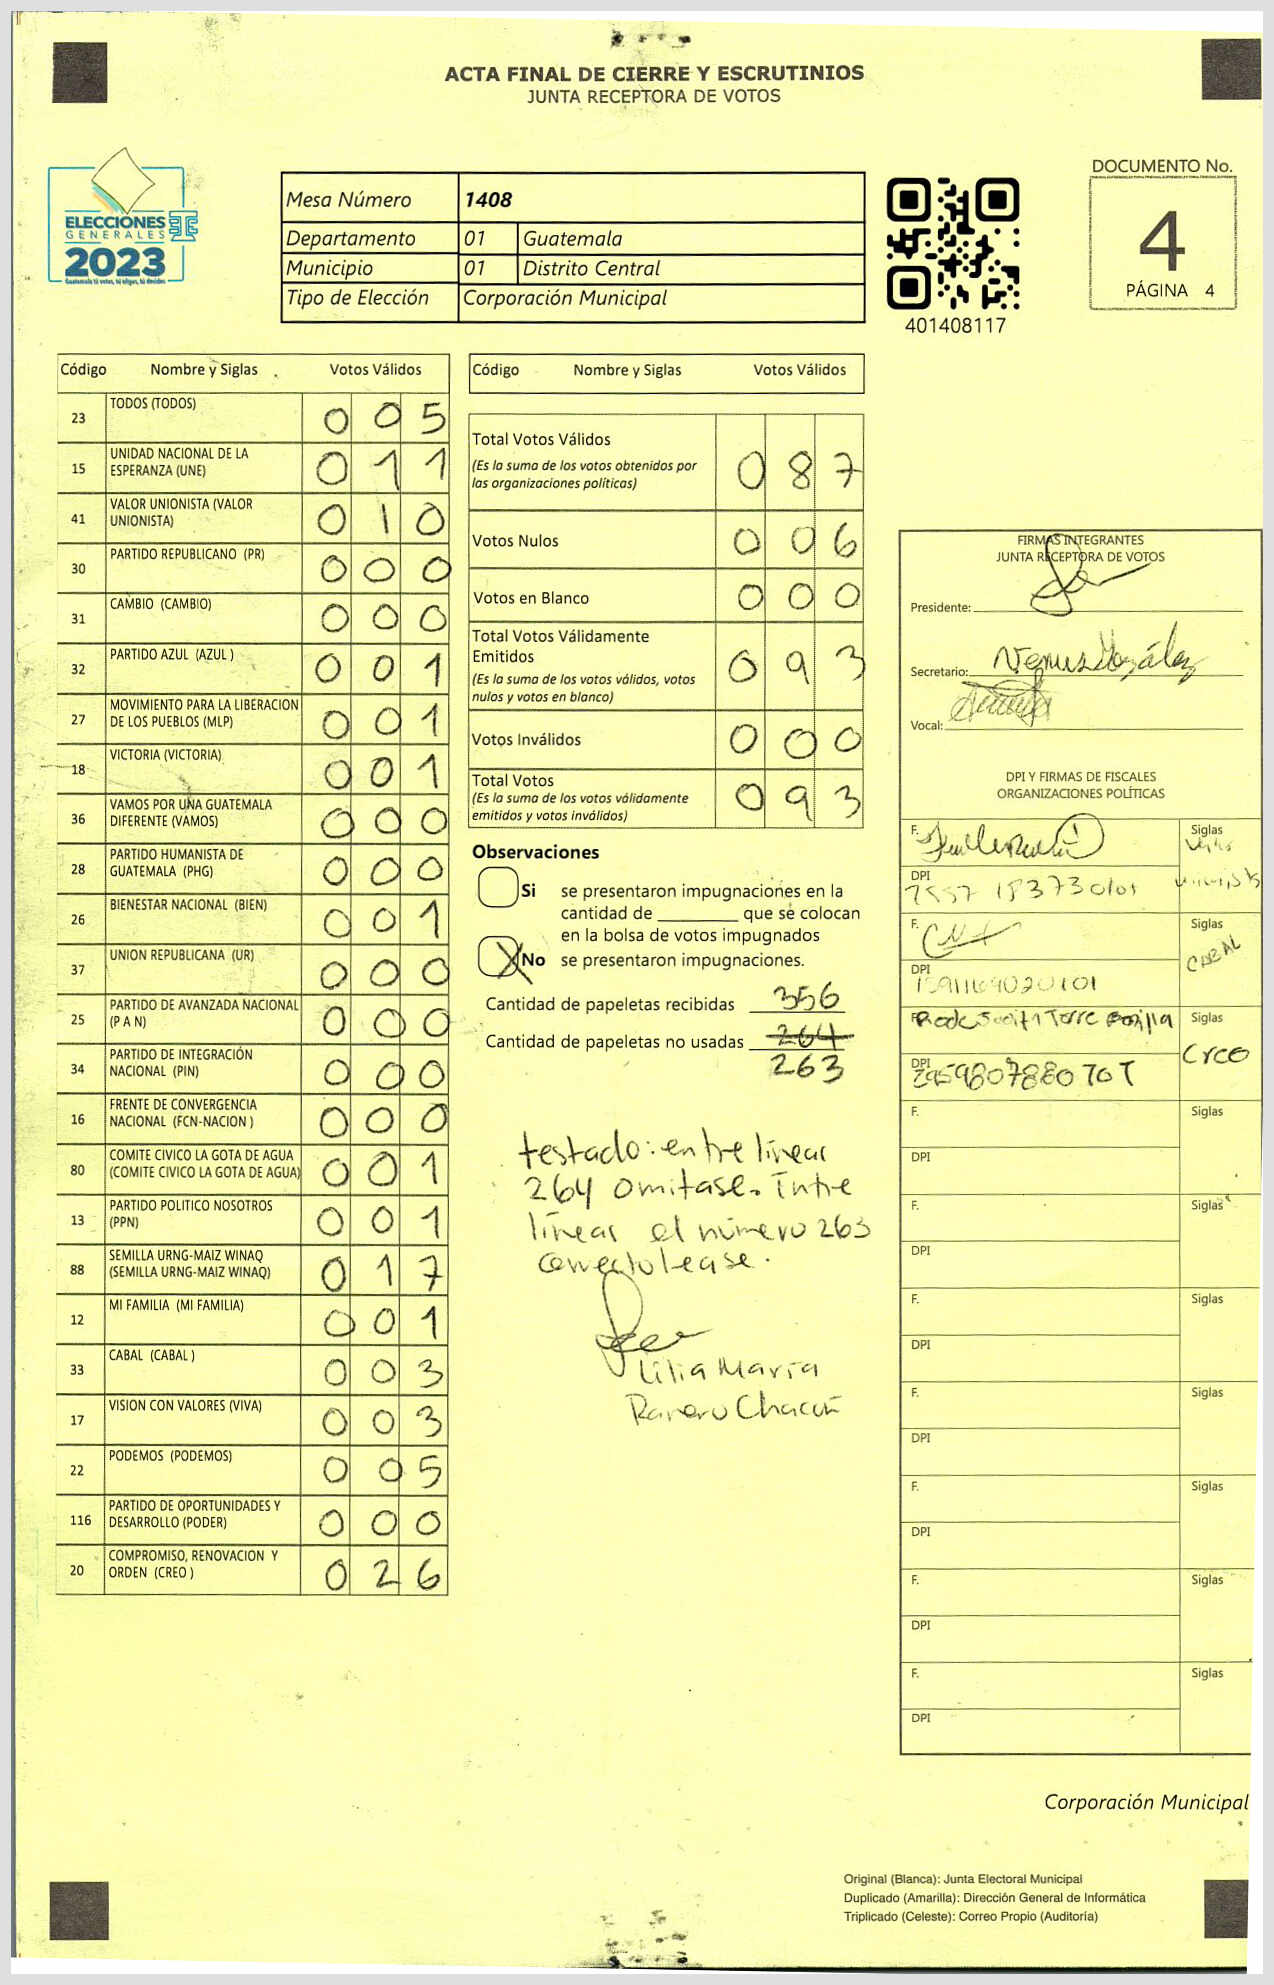 ACTA FINAL DE CIERRE Y ESCRUTINIOS
JUNTA RECEPTORA DE VOTOS
ELECCIONES
GENERALES
2023
Guatemala tú votas, tú eliges, tú decides
Mesa Número 1408
Departamento 01 Guatemala
Municipio 01 Distrito Central
Tipo de Elección Corporación Municipal
401408117
DOCUMENTO No.
4
PÁGINA 4
Código Nombre y Siglas Votos Válidos
23 TODOS (TODOS) 0 0 5
15 UNIDAD NACIONAL DE LA
ESPERANZA (UNE) 0 1 1
41 VALOR UNIONISTA (VALOR
UNIONISTA) 0 1 0
30 PARTIDO REPUBLICANO (PR) 0 0 0
31 CAMBIO (CAMBIO) 0 0 0
32 PARTIDO AZUL (AZUL ) 0 0 1
27 MOVIMIENTO PARA LA LIBERACION
DE LOS PUEBLOS (MLP) 0 0 1
18 VICTORIA (VICTORIA) 0 0 1
36 VAMOS POR UNA GUATEMALA
DIFERENTE (VAMOS) 0 0 0
28 PARTIDO HUMANISTA DE
GUATEMALA (PHG) 0 0 0
26 BIENESTAR NACIONAL (BIEN) 0 0 1
37 UNION REPUBLICANA (UR) 0 0 0
25 PARTIDO DE AVANZADA NACIONAL
(P A N) 0 0 0
34 PARTIDO DE INTEGRACIÓN
NACIONAL (PIN) 0 0 0
16 FRENTE DE CONVERGENCIA
NACIONAL (FCN-NACION ) 0 0 0
80 COMITE CIVICO LA GOTA DE AGUA
(COMITE CIVICO LA GOTA DE AGUA) 0 0 1
13 PARTIDO POLITICO NOSOTROS
(PPN) 0 0 1
88 SEMILLA URNG-MAIZ WINAQ
(SEMILLA URNG-MAIZ WINAQ) 0 1 7
12 MI FAMILIA (MI FAMILIA) 0 0 1
33 CABAL (CABAL ) 0 0 3
17 VISION CON VALORES (VIVA) 0 0 3
22 PODEMOS (PODEMOS) 0 0 5
116 PARTIDO DE OPORTUNIDADES Y
DESARROLLO (PODER) 0 0 0
20 COMPROMISO, RENOVACION Y
ORDEN (CREO ) 0 2 6
Código Nombre y Siglas Votos Válidos
Total Votos Válidos 0 8 7
(Es la suma de los votos obtenidos por
las organizaciones políticas)
Votos Nulos 0 0 6
Votos en Blanco 0 0 0
Total Votos Válidamente
Emitidos 0 9 3
(Es la suma de los votos válidos, votos
nulos y votos en blanco)
Votos Inválidos 0 0 0
Total Votos 0 9 3
(Es la suma de los votos válidamente
emitidos y votos inválidos)
Observaciones
Si se presentaron impugnaciones en la
cantidad de ________ que se colocan
en la bolsa de votos impugnados
No se presentaron impugnaciones.
Cantidad de papeletas recibidas 356
Cantidad de papeletas no usadas 264
263
testado: entre lineas
264 omitase. Intre
líneas el número 263
correcto lease.
Lilia María
Ranero Chacón
FIRMAS INTEGRANTES
JUNTA RECEPTORA DE VOTOS
Presidente:
Secretario: Venus González
Vocal:
DPI Y FIRMAS DE FISCALES
ORGANIZACIONES POLÍTICAS
F. Siglas
DPI
F. Siglas
CABAL
DPI
F. Siglas
Creo
DPI
F. Siglas
DPI
F. Siglas
DPI
F. Siglas
DPI
F. Siglas
DPI
F. Siglas
DPI
F. Siglas
DPI
F. Siglas
DPI
Corporación Municipal
Original (Blanca): Junta Electoral Municipal
Duplicado (Amarilla): Dirección General de Informática
Triplicado (Celeste): Correo Propio (Auditoría)